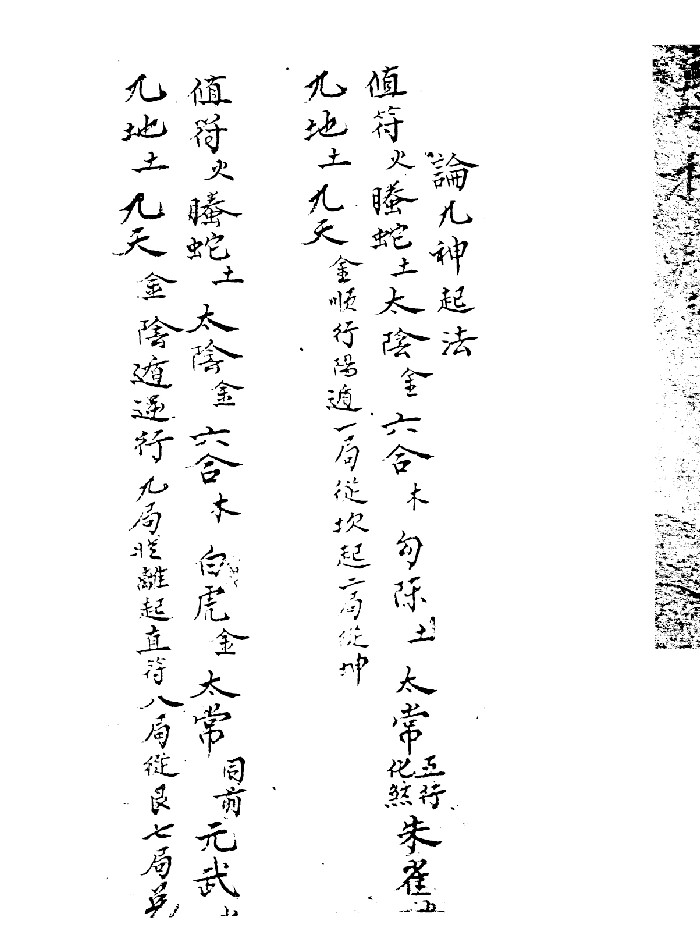 論九神起法
值符火螣蛇土太陰金六合木勾陈土太常五行化煞朱雀
九地土九天金順行陽遁一局從坎起二局從坤
值符火螣蛇土太陰金六合木白虎金太常同前元武
九地土九天金陰遁逆行九局從離起直符八局從艮七局